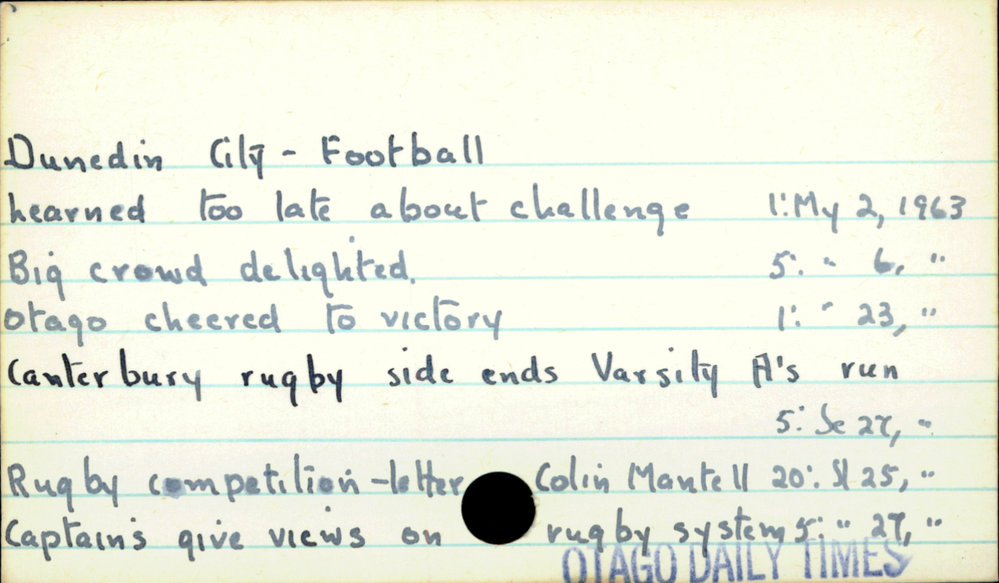 Dunedin City - Football
hearned too late about challenge 1: My 2, 1963
Big crowd delighted. 5: " 6, "
Otago cheered to victory 1: " 23, "
Canterbury rugby side ends Varsity A's run
5: Se 27, "
Rugby competition - letter Colin Mantell 20: Jl 25, "
Captains give views on rugby system 5: " 27, "
OTAGO DAILY TIMES